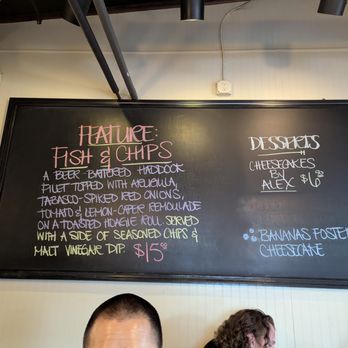 FEATURE:
FISH & CHIPS
A BEER BATTERED HADDOCK
FILET TOPPED WITH ARUGULA,
TABASCO-SPIKED RED ONIONS,
TOMATO & LEMON-CAPER REMOULADE
ON A TOASTED HOAGIE ROLL. SERVED
WITH A SIDE OF SEASONED CHIPS &
MALT VINEGAR DIP. $15
DESSERTS
CHEESECAKES
BY
ALEX $6
BANANAS FOSTE
CHEESECAKE